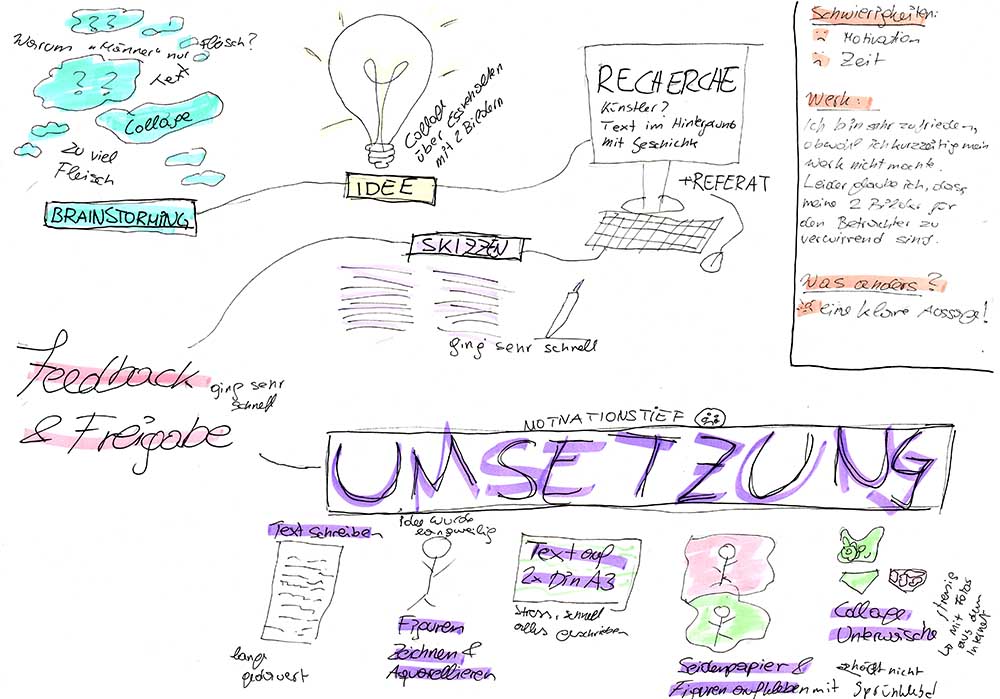 ???
Warum "Männer" nur Fleisch?
? ?
Text
Collage
Zu viel
Fleisch
BRAINSTORMING
Collage
über Essverhalten
mit 2 Bildern
IDEE
RECHERCHE
Künstler?
Text im Hintergrund
mit Geschichte
+REFERAT
SKIZZEN
ging sehr schnell
Feedback
& Freigabe
ging sehr
schnell
Schwierigkeiten:
Motivation
Zeit
Werk:
Ich bin sehr zufrieden,
obwohl ich kurzzeitig mein
Werk nicht mochte.
Leider glaube ich, dass
meine 2 Bilder für
den Betrachter zu
verwirrend sind.
Was anders?
eine klare Aussage!
MOTIVATIONSTIEF
UMSETZUNG
Text schreiben
lang
gedauert
Idee wurde
langweilig
Figuren
Zeichnen &
Aquarellieren
Text auf
2x Din A3
Stress, schnell
alles geschrieben
Seidenpapier &
Figuren aufkleben mit
Sprühkleber
Collage
Unterwäsche
nicht
mit Fotos
aus dem
Internet